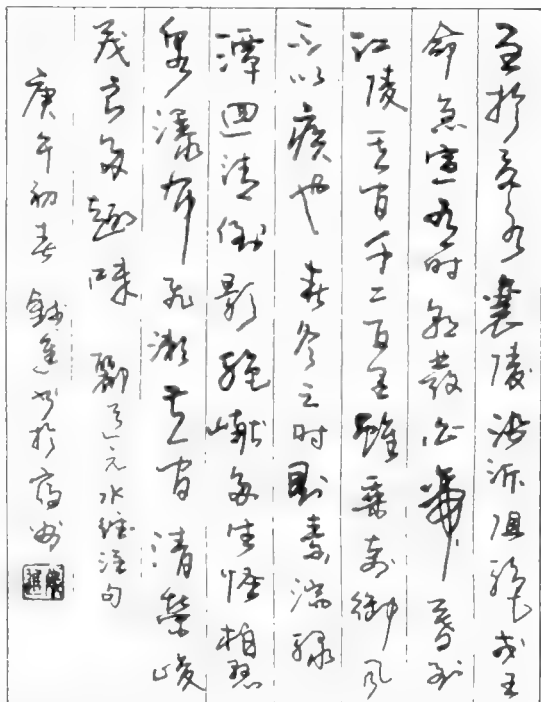 至於夏水襄陵沿泝阻絶或王
命急宣有时朝發白帝暮到
江陵其间千二百里雖乘奔御风
不以疾也春冬之时則素湍緑
潭迴清倒影絶巘多生怪柏懸
泉瀑布飛漱其间清榮峻
茂良多趣味 酈道元水经注句
庚午初春 進书於州